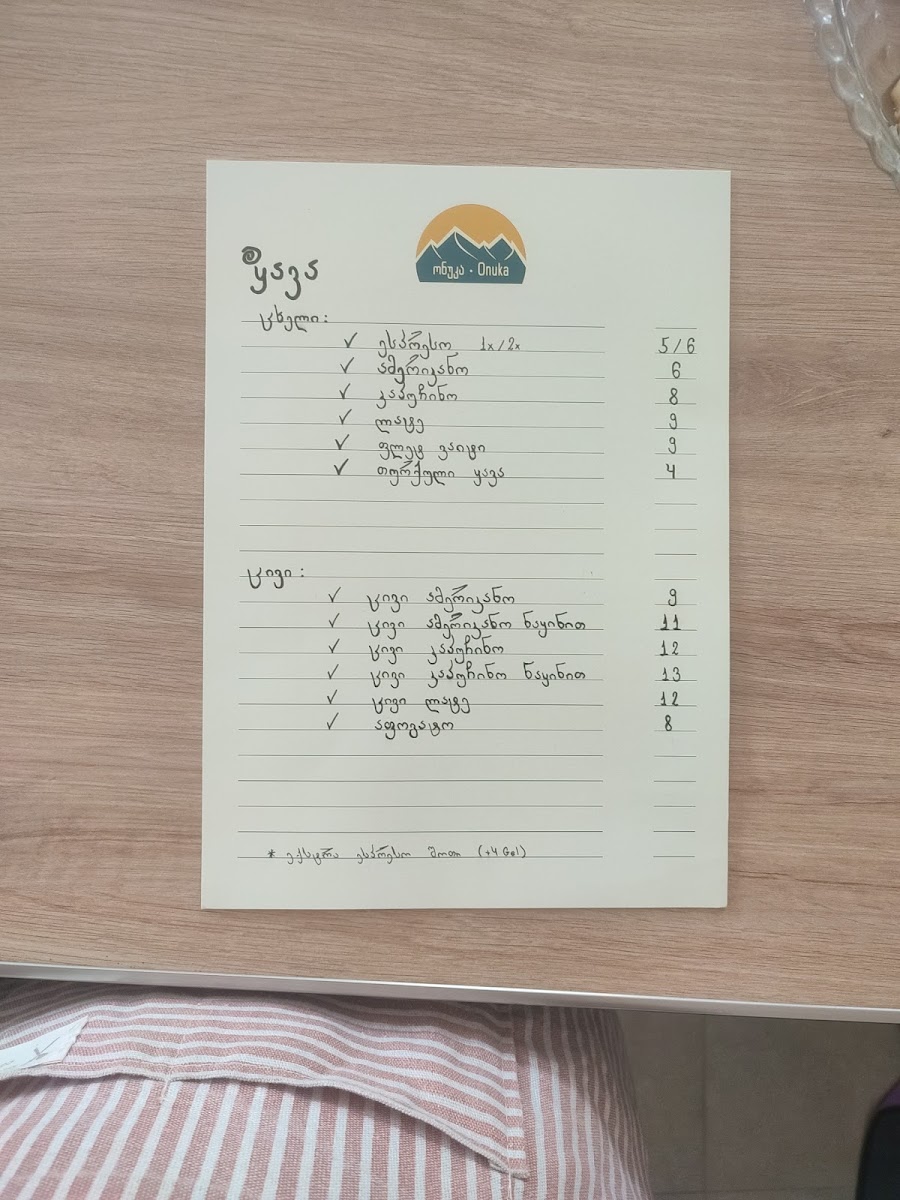 ონუკა · Onuka
ყავა
ცხელი:
✓ ესპრესო 1x/2x 5/6
✓ ამერიკანო 6
✓ კაპუჩინო 8
✓ ლატე 9
✓ ფლეტ ვაიტი 9
✓ თურქული ყავა 4
ცივი:
✓ ცივი ამერიკანო 9
✓ ცივი ამერიკანო ნაყინით 11
✓ ცივი კაპუჩინო 12
✓ ცივი კაპუჩინო ნაყინით 13
✓ ცივი ლატე 12
✓ აფოგატო 8
* ექსტრა ესპრესო შოთი (+4 Gel)